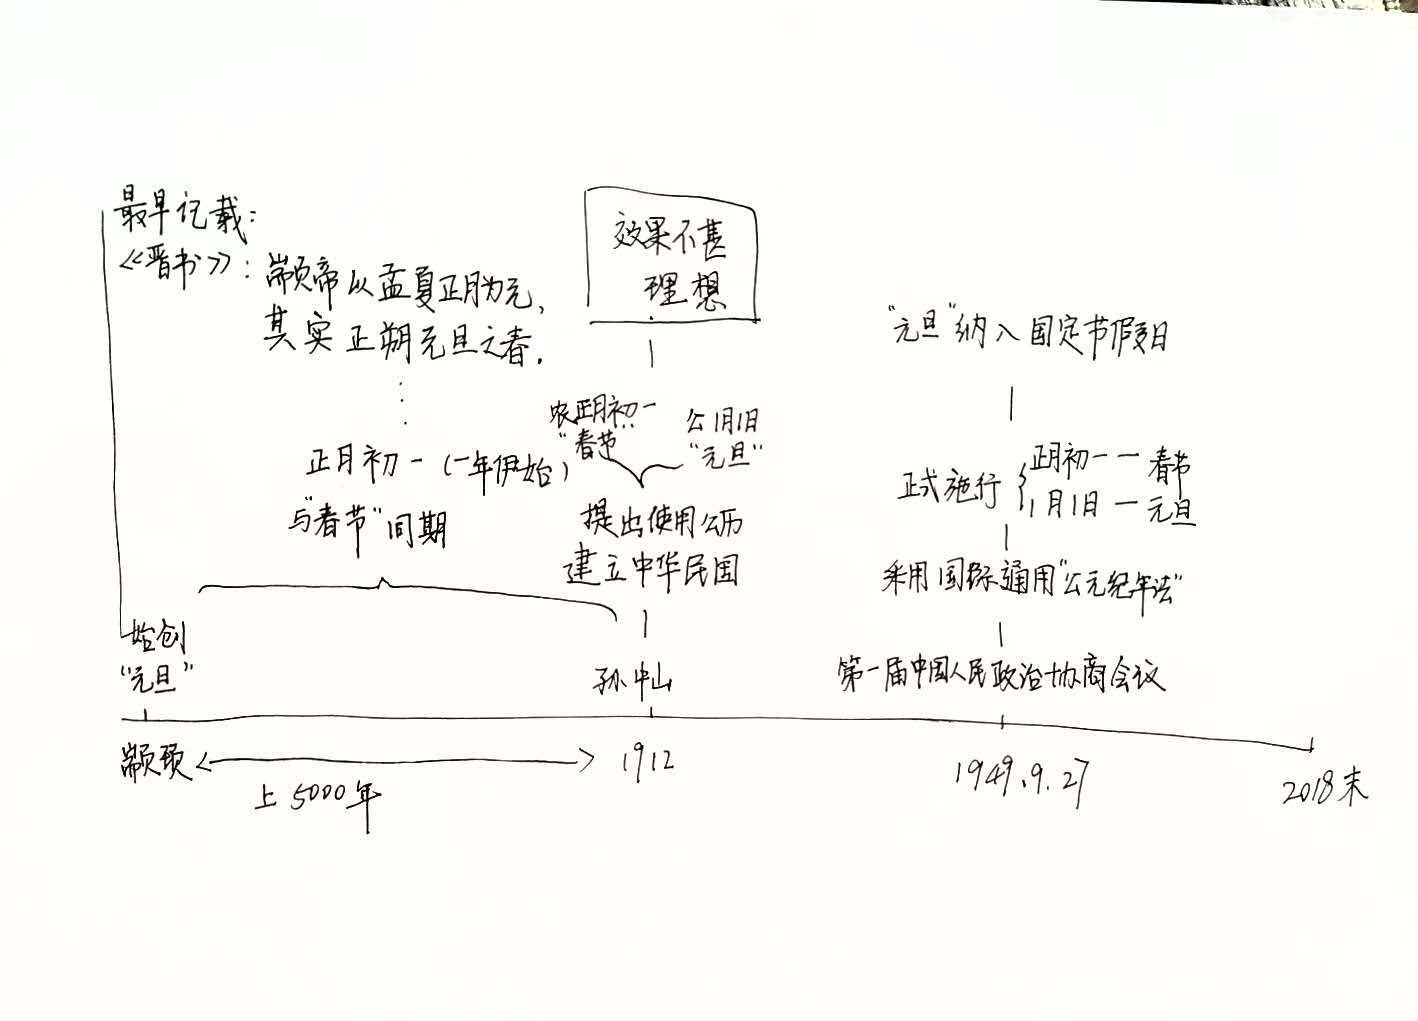 最早记载:
《晋书》: 颛帝以孟夏正月为元,
其实正朔元旦之春.
正月初一(一年伊始)
与"春节"同期
始创
"元旦"
颛顼
上5000年
效果不甚
理想
农正月初一
"春节"
公1月1日
"元旦"
提出使用公历
建立中华民国
孙中山
1912
"元旦"纳入国定节假日
正式施行
正月初一一春节
1月1日一元旦
采用国际通用"公元纪年法"
第一届中国人民政治协商会议
1949.9.27
2018末